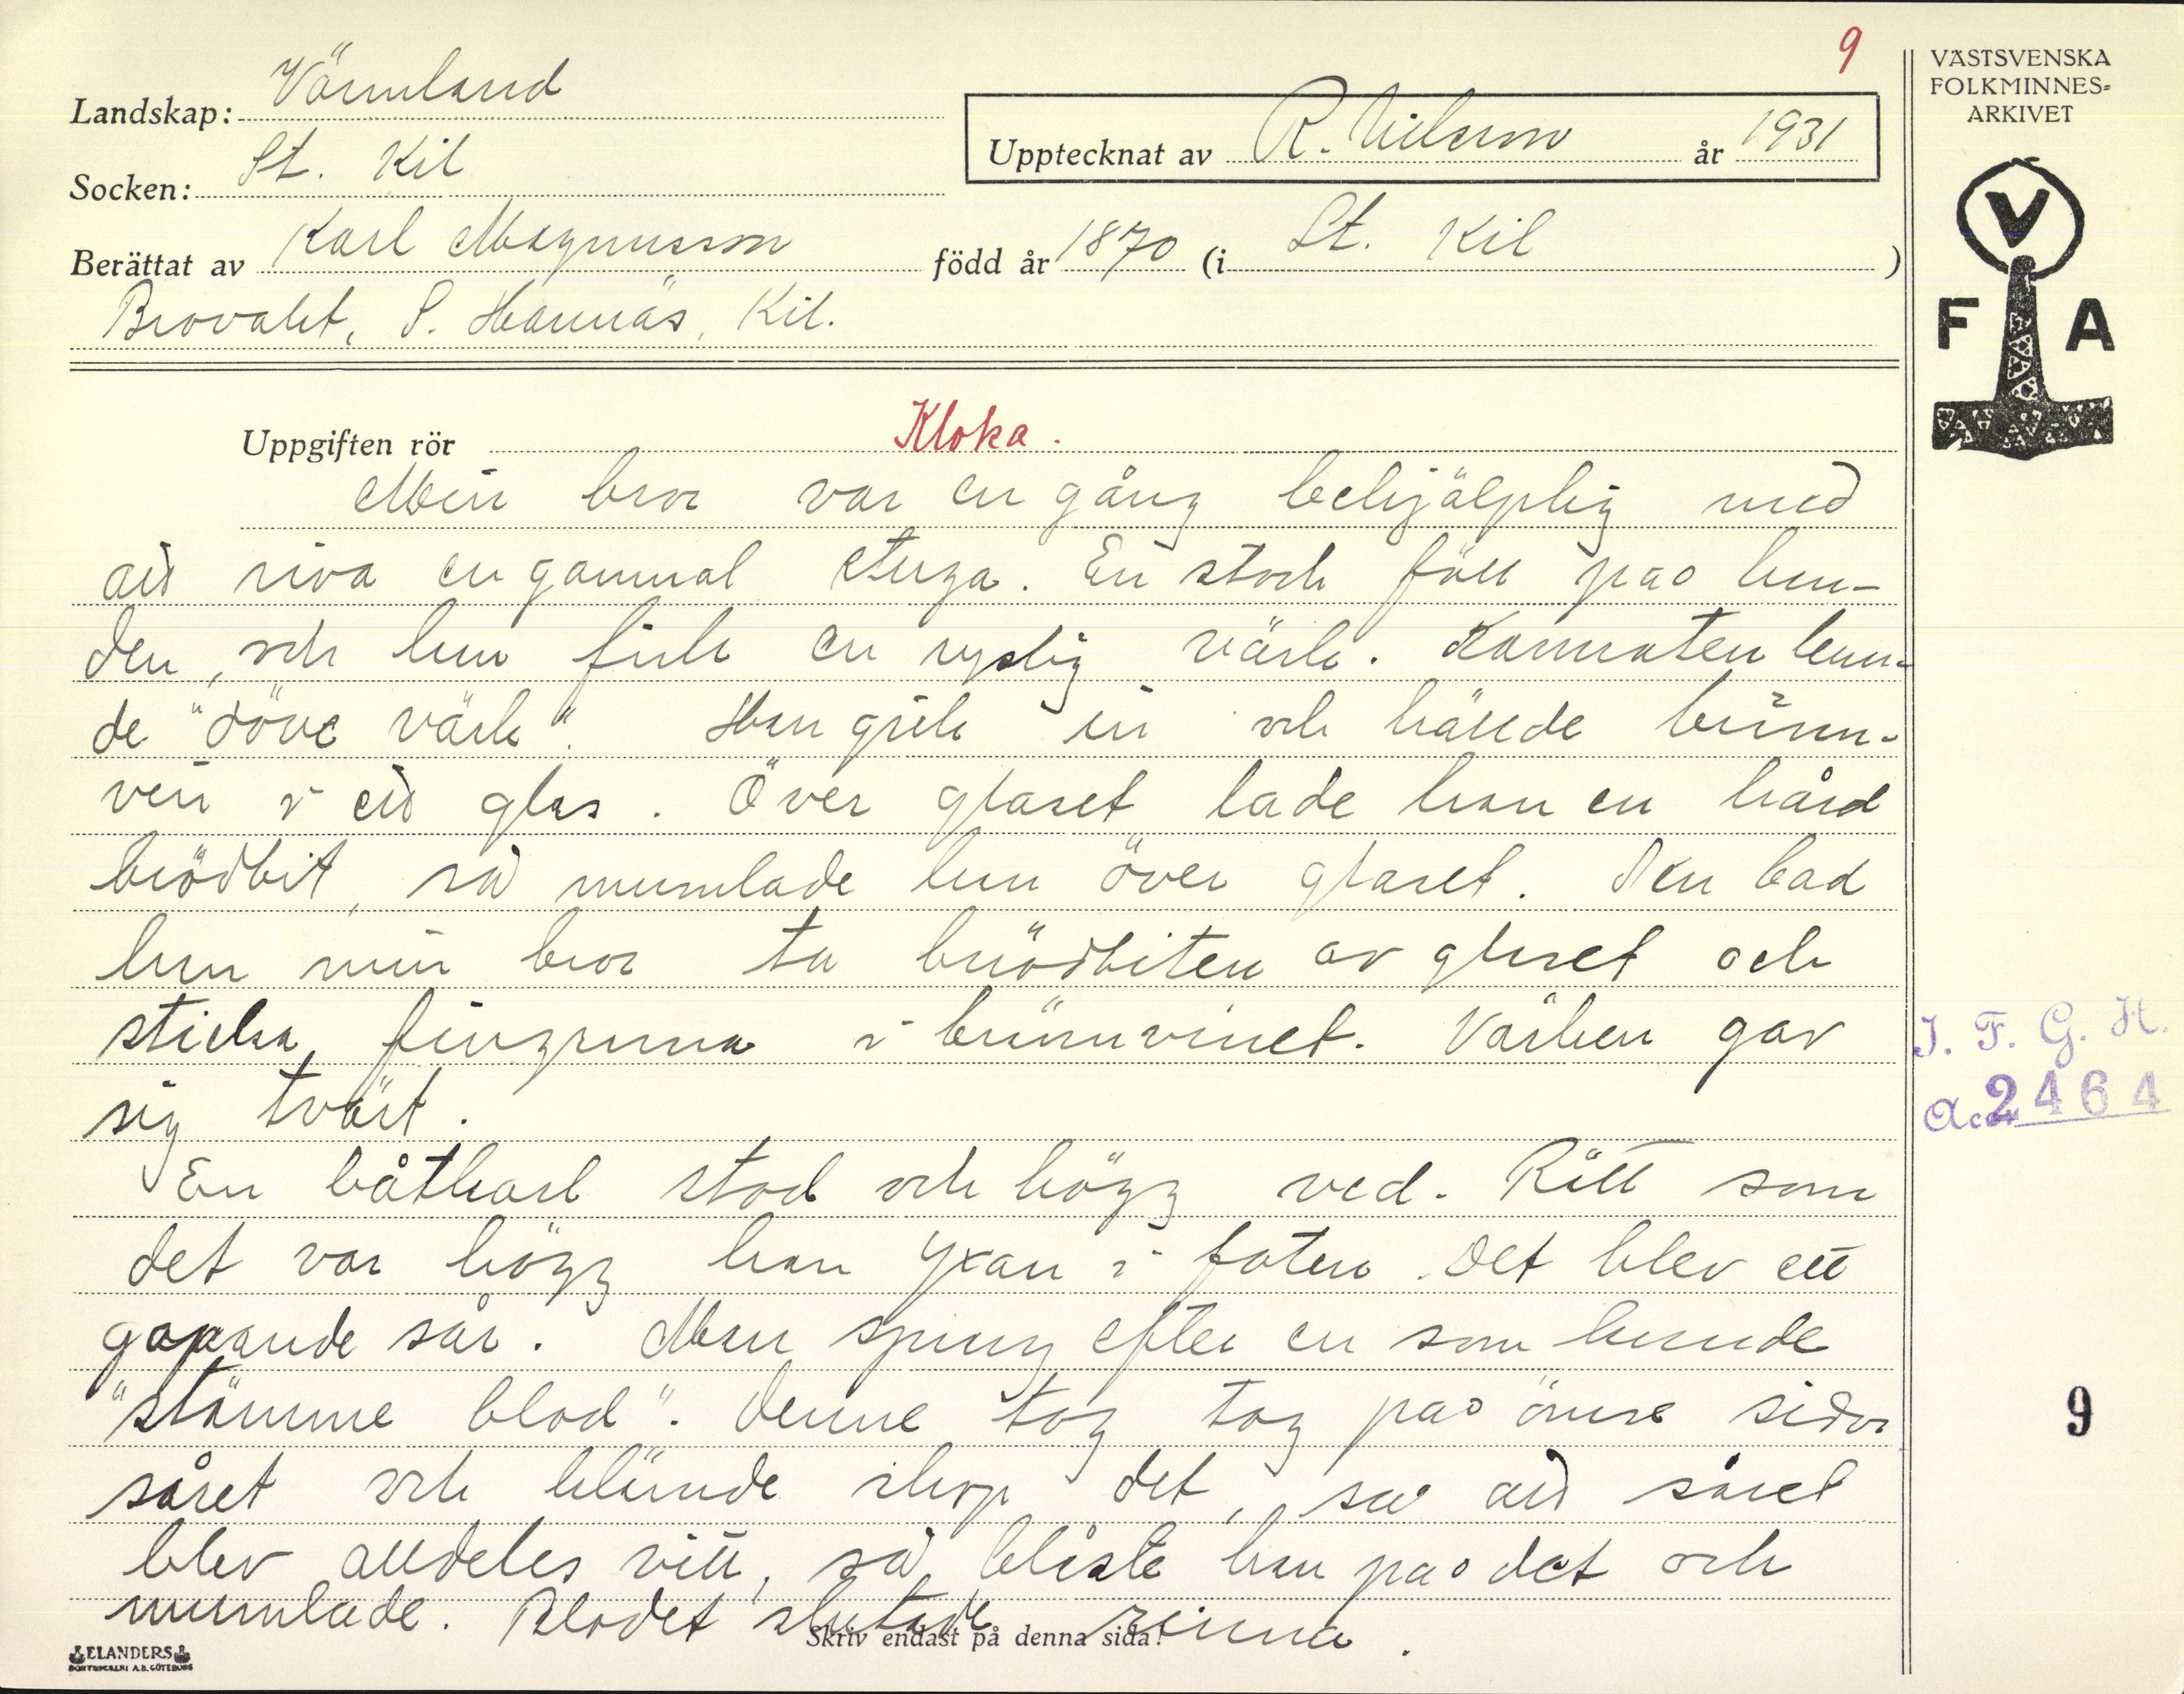 9
VÄSTSVENSKA
FOLKMINNES=
ARKIVET
Landskap: Värmland
Upptecknat av R. Nilsson år 1931
Socken: St. Kil
Berättat av Karl Magnusson född år 1870 (i St. Kil )
S. Hannäs, Kil.
V
F A
Uppgiften rör Kloka.
Min bror var en gång behjälplig med
att riva en gammal stuga. En stock föll på han-
den, och han fick en ryslig värk. Kamraten kun-
de "döve värk". Han gick in och hällde bränn-
vin i ett glas. Över glaset lade han en hård
brödbit, så mumlade han över glaset. Sen bad
han min bror ta brödbiten av glaset och
sticka fingrarna i brännvinet. Värken gav
sig tvärt.
En båtkarl stod och högg ved. Rätt som
det var högg han yxan i foten. Det blev ett
gapande sår. Man sprang efter en som kunde
"stämme blod". Denne tog tag på ömse sidor
såret och klämde ihop det, så att såret
blev alldeles vitt, så blåste han på det och
mumlade. Blodet slutade rinna.
Skriv endast på denna sida!
ELANDERS
BOKTRYCKERI A.B. GÖTEBORG
I. F. G. H.
Acc. 2464
9